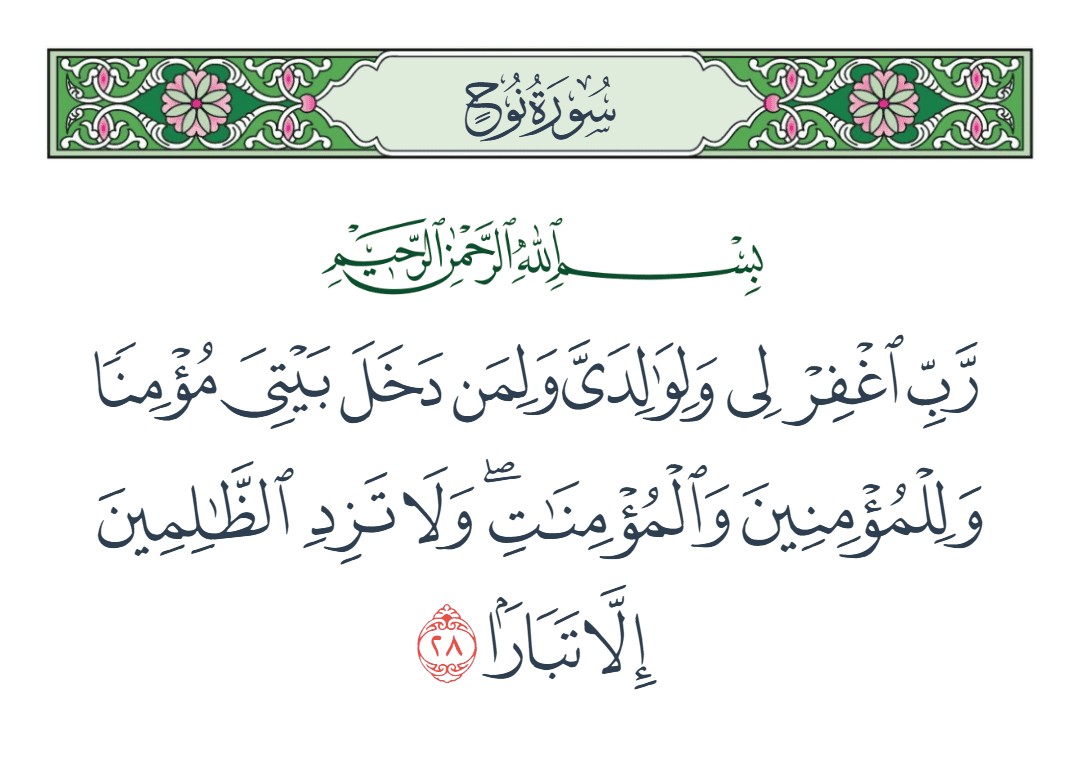 سُورَةُ نُوحٍ
بِسْمِ ٱللَّهِ ٱلرَّحْمَٰنِ ٱلرَّحِيمِ
رَّبِّ ٱغْفِرْ لِى وَلِوَٰلِدَىَّ وَلِمَن دَخَلَ بَيْتِىَ مُؤْمِنًا
وَلِلْمُؤْمِنِينَ وَٱلْمُؤْمِنَٰتِ ۖ وَلَا تَزِدِ ٱلظَّٰلِمِينَ
إِلَّا تَبَارًۢا ٢٨